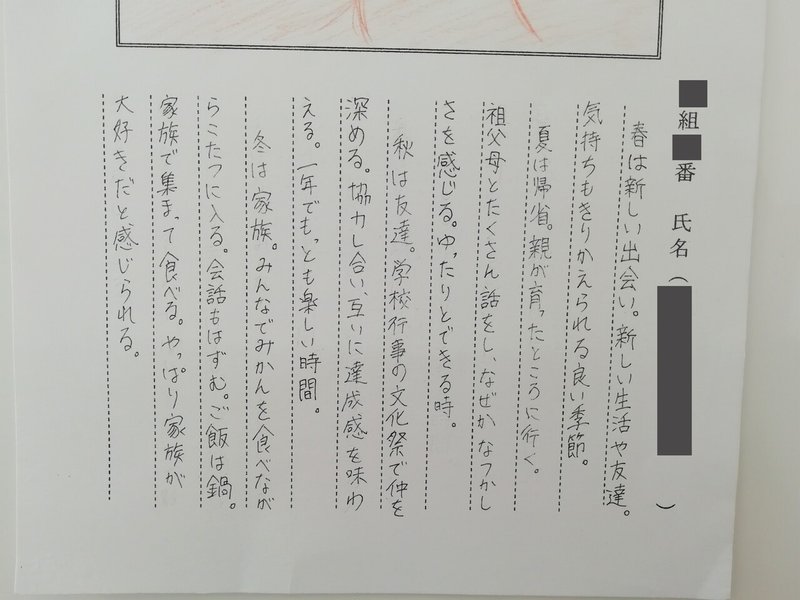 組 番 氏名（ ）
春は新しい出会い。新しい生活や友達。
気持ちもきりかえられる良い季節。
夏は帰省。親が育ったところに行く。
祖父母とたくさん話をし、なぜかなつかし
さを感じる。ゆったりとできる時。
秋は友達。学校行事の文化祭で仲を
深める。協力し合い、互いに達成感を味わ
える。一年でもっとも楽しい時間。
冬は家族。みんなでみかんを食べなが
らこたつに入る。会話もはずむ。ご飯は鍋。
家族で集まって食べる。やっぱり家族が
大好きだと感じられる。